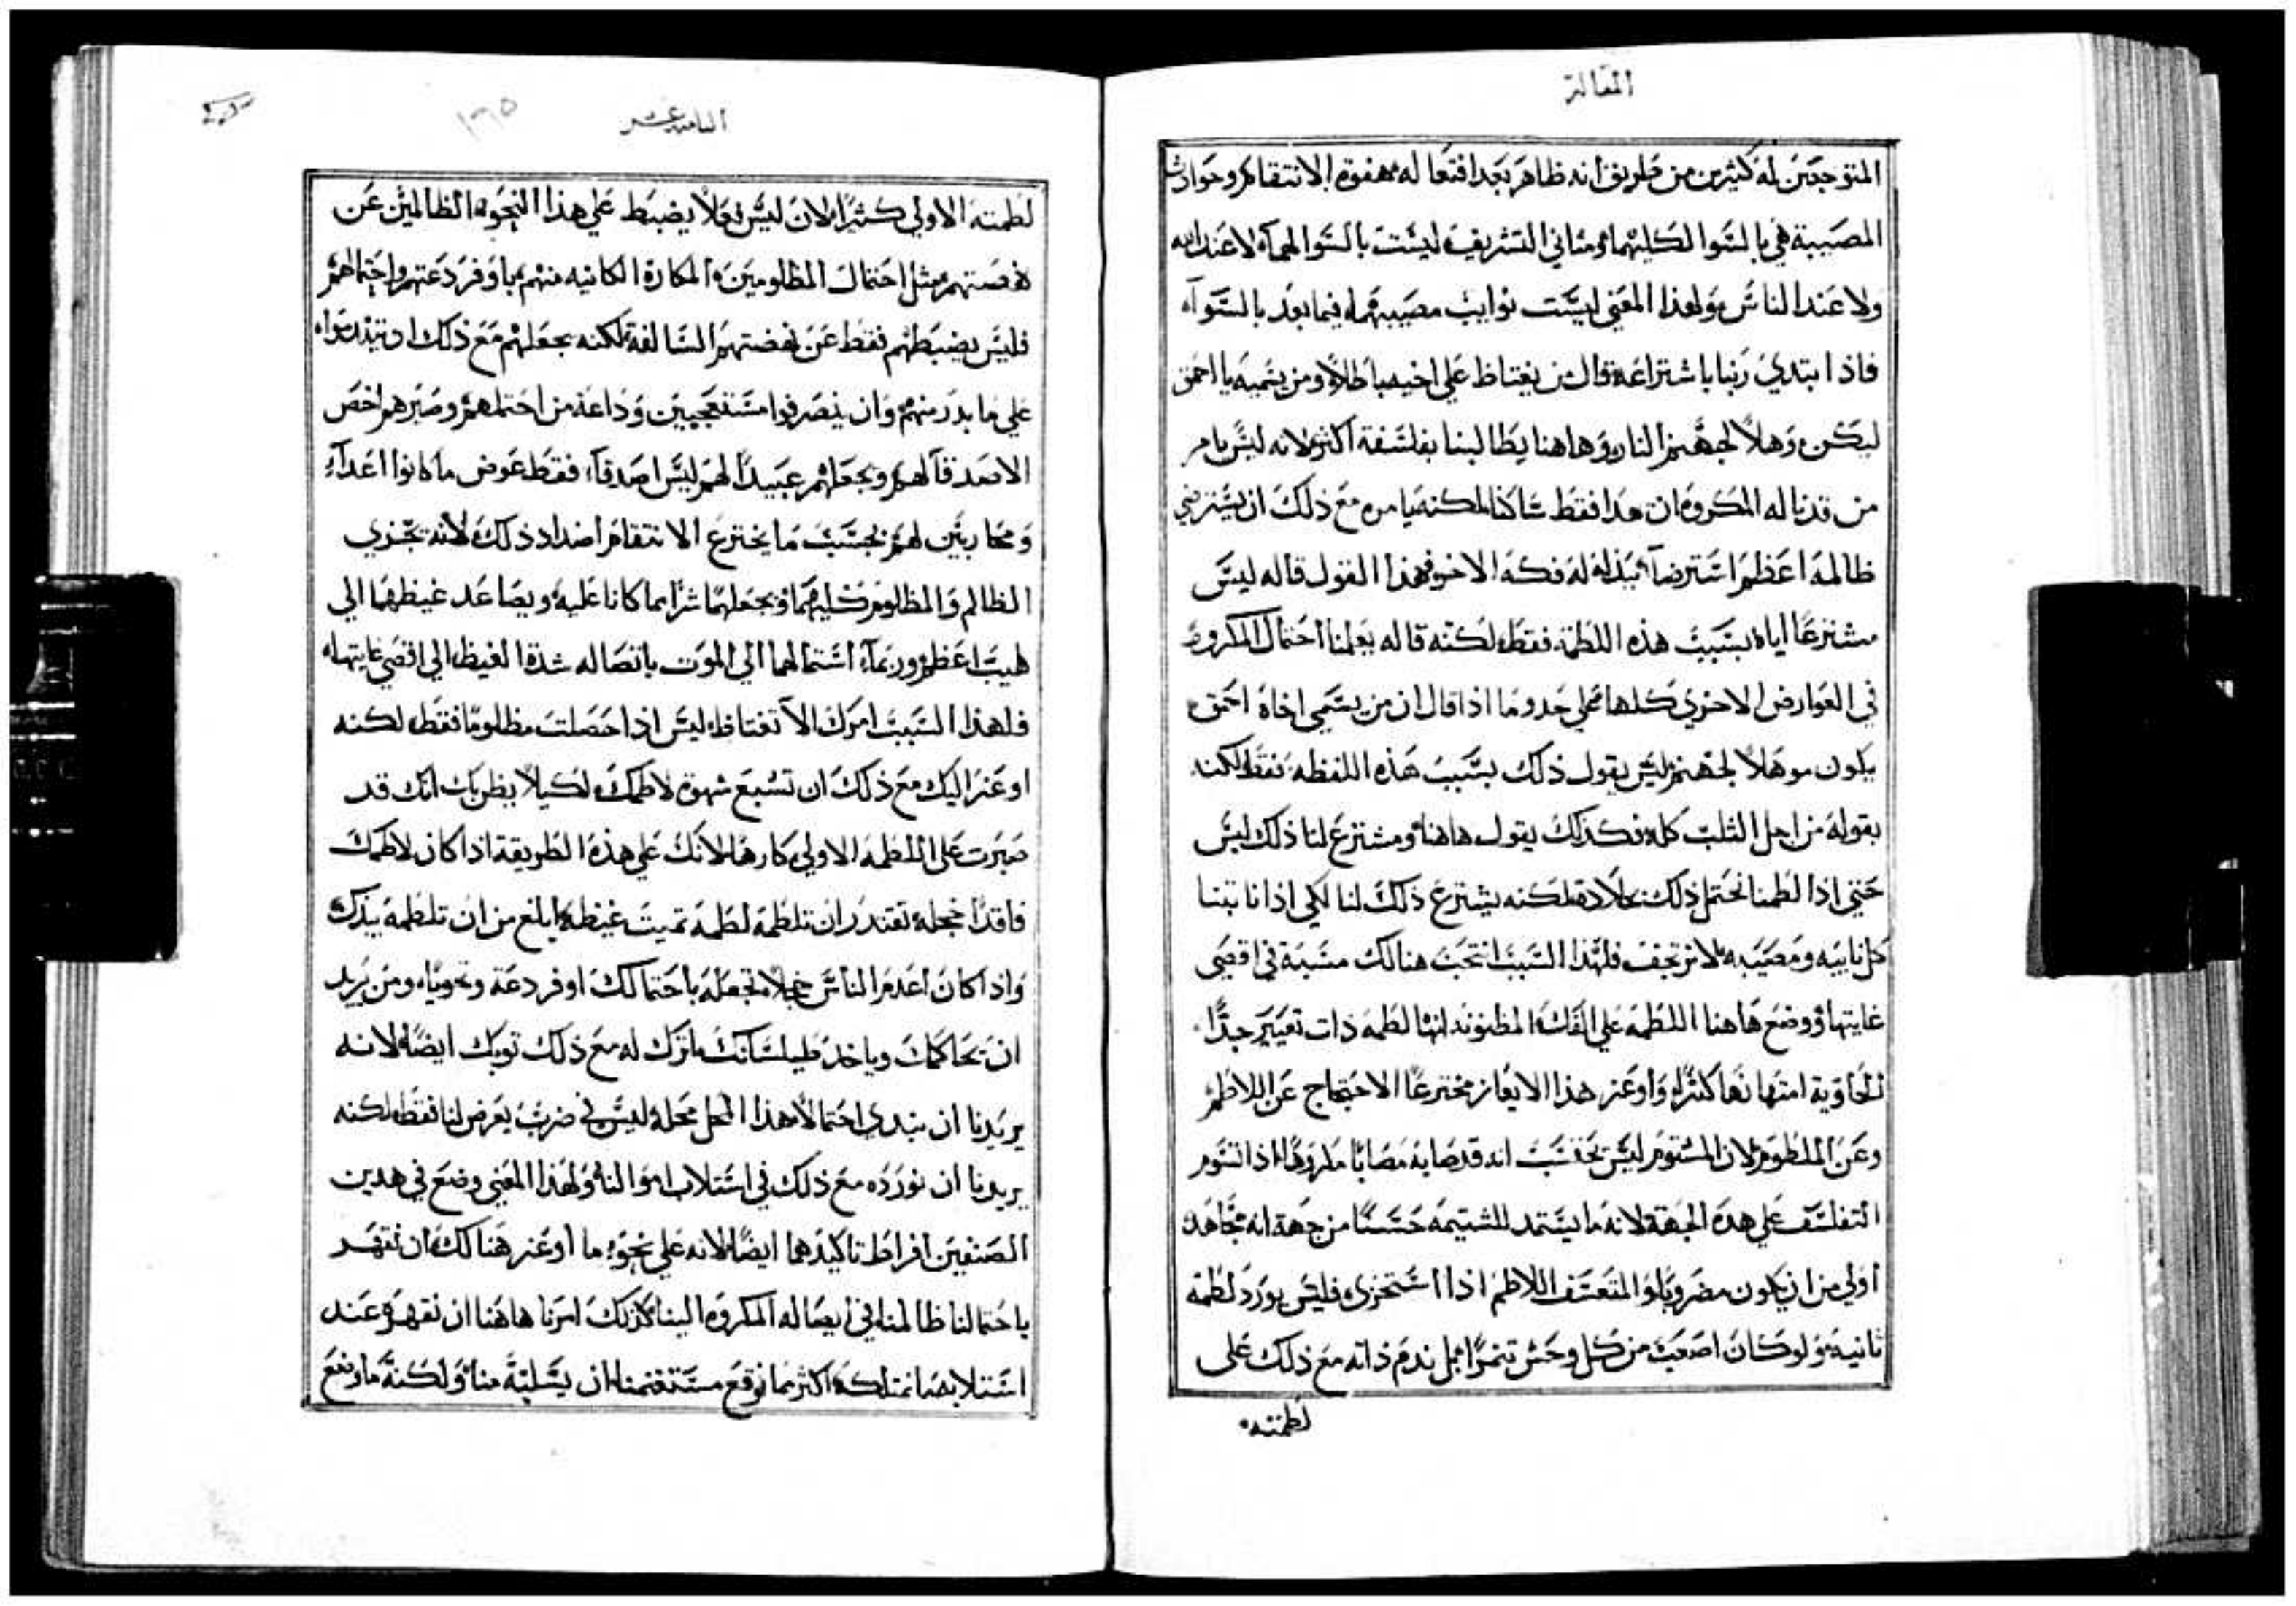 المقالة
المتوجعين له كثيرين من طريق انه ظاهر بعد افتعاله هفوة الانتقام وحوادث
المصيبة هي بالسوا لكليهما ومثاني التشريف ليست بالسوا لهما لا عند الله
ولا عند الناس ولهذا المعني ليست نوايب مصيبتهما فيما بعد بالسوآ
فاذا ابتدي ربنا باشتراعه قال من يغتاظ علي اخيه باطلا ومن يسميه يا احمق
ليكن وهلا لجهنم النار وهاهنا يطالبنا بفلسفة اكثر لانه ليس يامر
من قد ناله المكروه ان هدا فقط ساكنا لكنه يامره مع ذلك ان يسترضي
ظالمه اعظم استرضآ ببذله له فكه الاخر فهذا القول قاله ليس
مشترعا اياه بسبب هذه اللطمة فقط لكنه قاله يعلمنا احتمال المكروه
في العوارض الاخري كلها علي حدوما اذا قال ان من يسمي اخاه احمق
يكون موهلا لجهنم ليس يقول ذلك بسبب هذه اللفظه فقط لكنه
يقوله من اجل الثلب كله فكذلك يقول هاهنا ومشترع لنا ذلك ليس
حتي اذا لطمنا نحتمل ذلك بجلادة لكنه يشترع ذلك لنا لكي اذا نابتنا
كل نايبه ومصيبه لا نرتجف فلهذا السبب انتخب هنالك مسبة في اقصي
غايتها ووضع هاهنا اللطمه علي الفك المظنونه انها لطمه ذات تعيير جدا
الحاوية امتهانها كثيرا واوعز هذا الايعاز مخترعا الاحتجاج عن اللاطم
وعن الملطوم لان المشتوم ليس يحتسب انه قد صابه مصابا مكروها اذا التزم
التفلسف علي هذه الجهة لانه ما يستمد للشتيمه حسنا من جهة انه مجاهد
اولي من ان يكون مضروبا والمتعسف اللاطم اذا استخزي فليس يورد لطمه
ثانيه ولو كان اصعب من كل وحش تنمرا بل ندم ذاته مع ذلك علي
لطمته
الثامنه عشر
١٣٥
لطمته الاولي كثيرا لان ليس فعلا يضبط علي هذا النحو الظالمين عن
نهضتهم مثل احتمال المظلومين المكاره الكاينه منهم باوفر دعتهم واحتمالهم
فليس يضبطهم فقط عن نهضتهم السالفة لكنه يجعلهم مع ذلك ان يتندموا
علي ما بدر منهم وان ينصرفوا مستعجبين وداعة من احتملهم وصبرهم اخص
الاصدقآ لهم ويجعلهم عبيدا لهم ليس اصدقآ فقط عوض ما كانوا اعدآء
ومحاربين لهم بحسب ما يخترع الانتقام اضداد ذلك لانه يخزي
الظالم والمظلوم كليهما ويجعلهما شرا مما كانا عليه ويصاعد غيظهما الي
لهيب اعظم وربمآ اشتمالهما الي الموت باتصاله شدة الغيظ الي اقصي غايتها
فلهذا السبب امرك الا تغتاظ ليس اذا حصلت مظلوما فقط لكنه
اوعز اليك مع ذلك ان تشبع شهوة لاطمك لكيلا يظن بك انك قد
صبرت علي اللطمه الاولي كارها لانك علي هذه الطريقة اذا كان لاطمك
فاقدا خجله تقتدر ان تلطمه لطمة تميت غيظه ابلغ من ان تلطمه بيدك
واذا كان اعدم الناس خجلا تجعله باحتمالك اوفر دعة ونحوياه ومن يريد
ان يحاكمك وياخذ طيلسانك فاترك له مع ذلك توبك ايضا لانه
يريدنا ان نبدي احتمالا هذا المحل محله ليس في ضرب يعرض لنا فقط لكنه
يريدنا ان نورده مع ذلك في استلاب اموالنا ولهذا المعني وضع في هدين
الصنفين افراط تاكيدهما ايضا لانه علي نحو ما اوعز هنالك ان نقهر
باحتمالنا ظالمنا في ايصاله المكروه الينا كذلك امرنا هاهنا ان نقهره عند
استلابه ما نمتلكه اكثر مما توقع مستغنمنا ان يسلبه منا ولكنه ما وضع